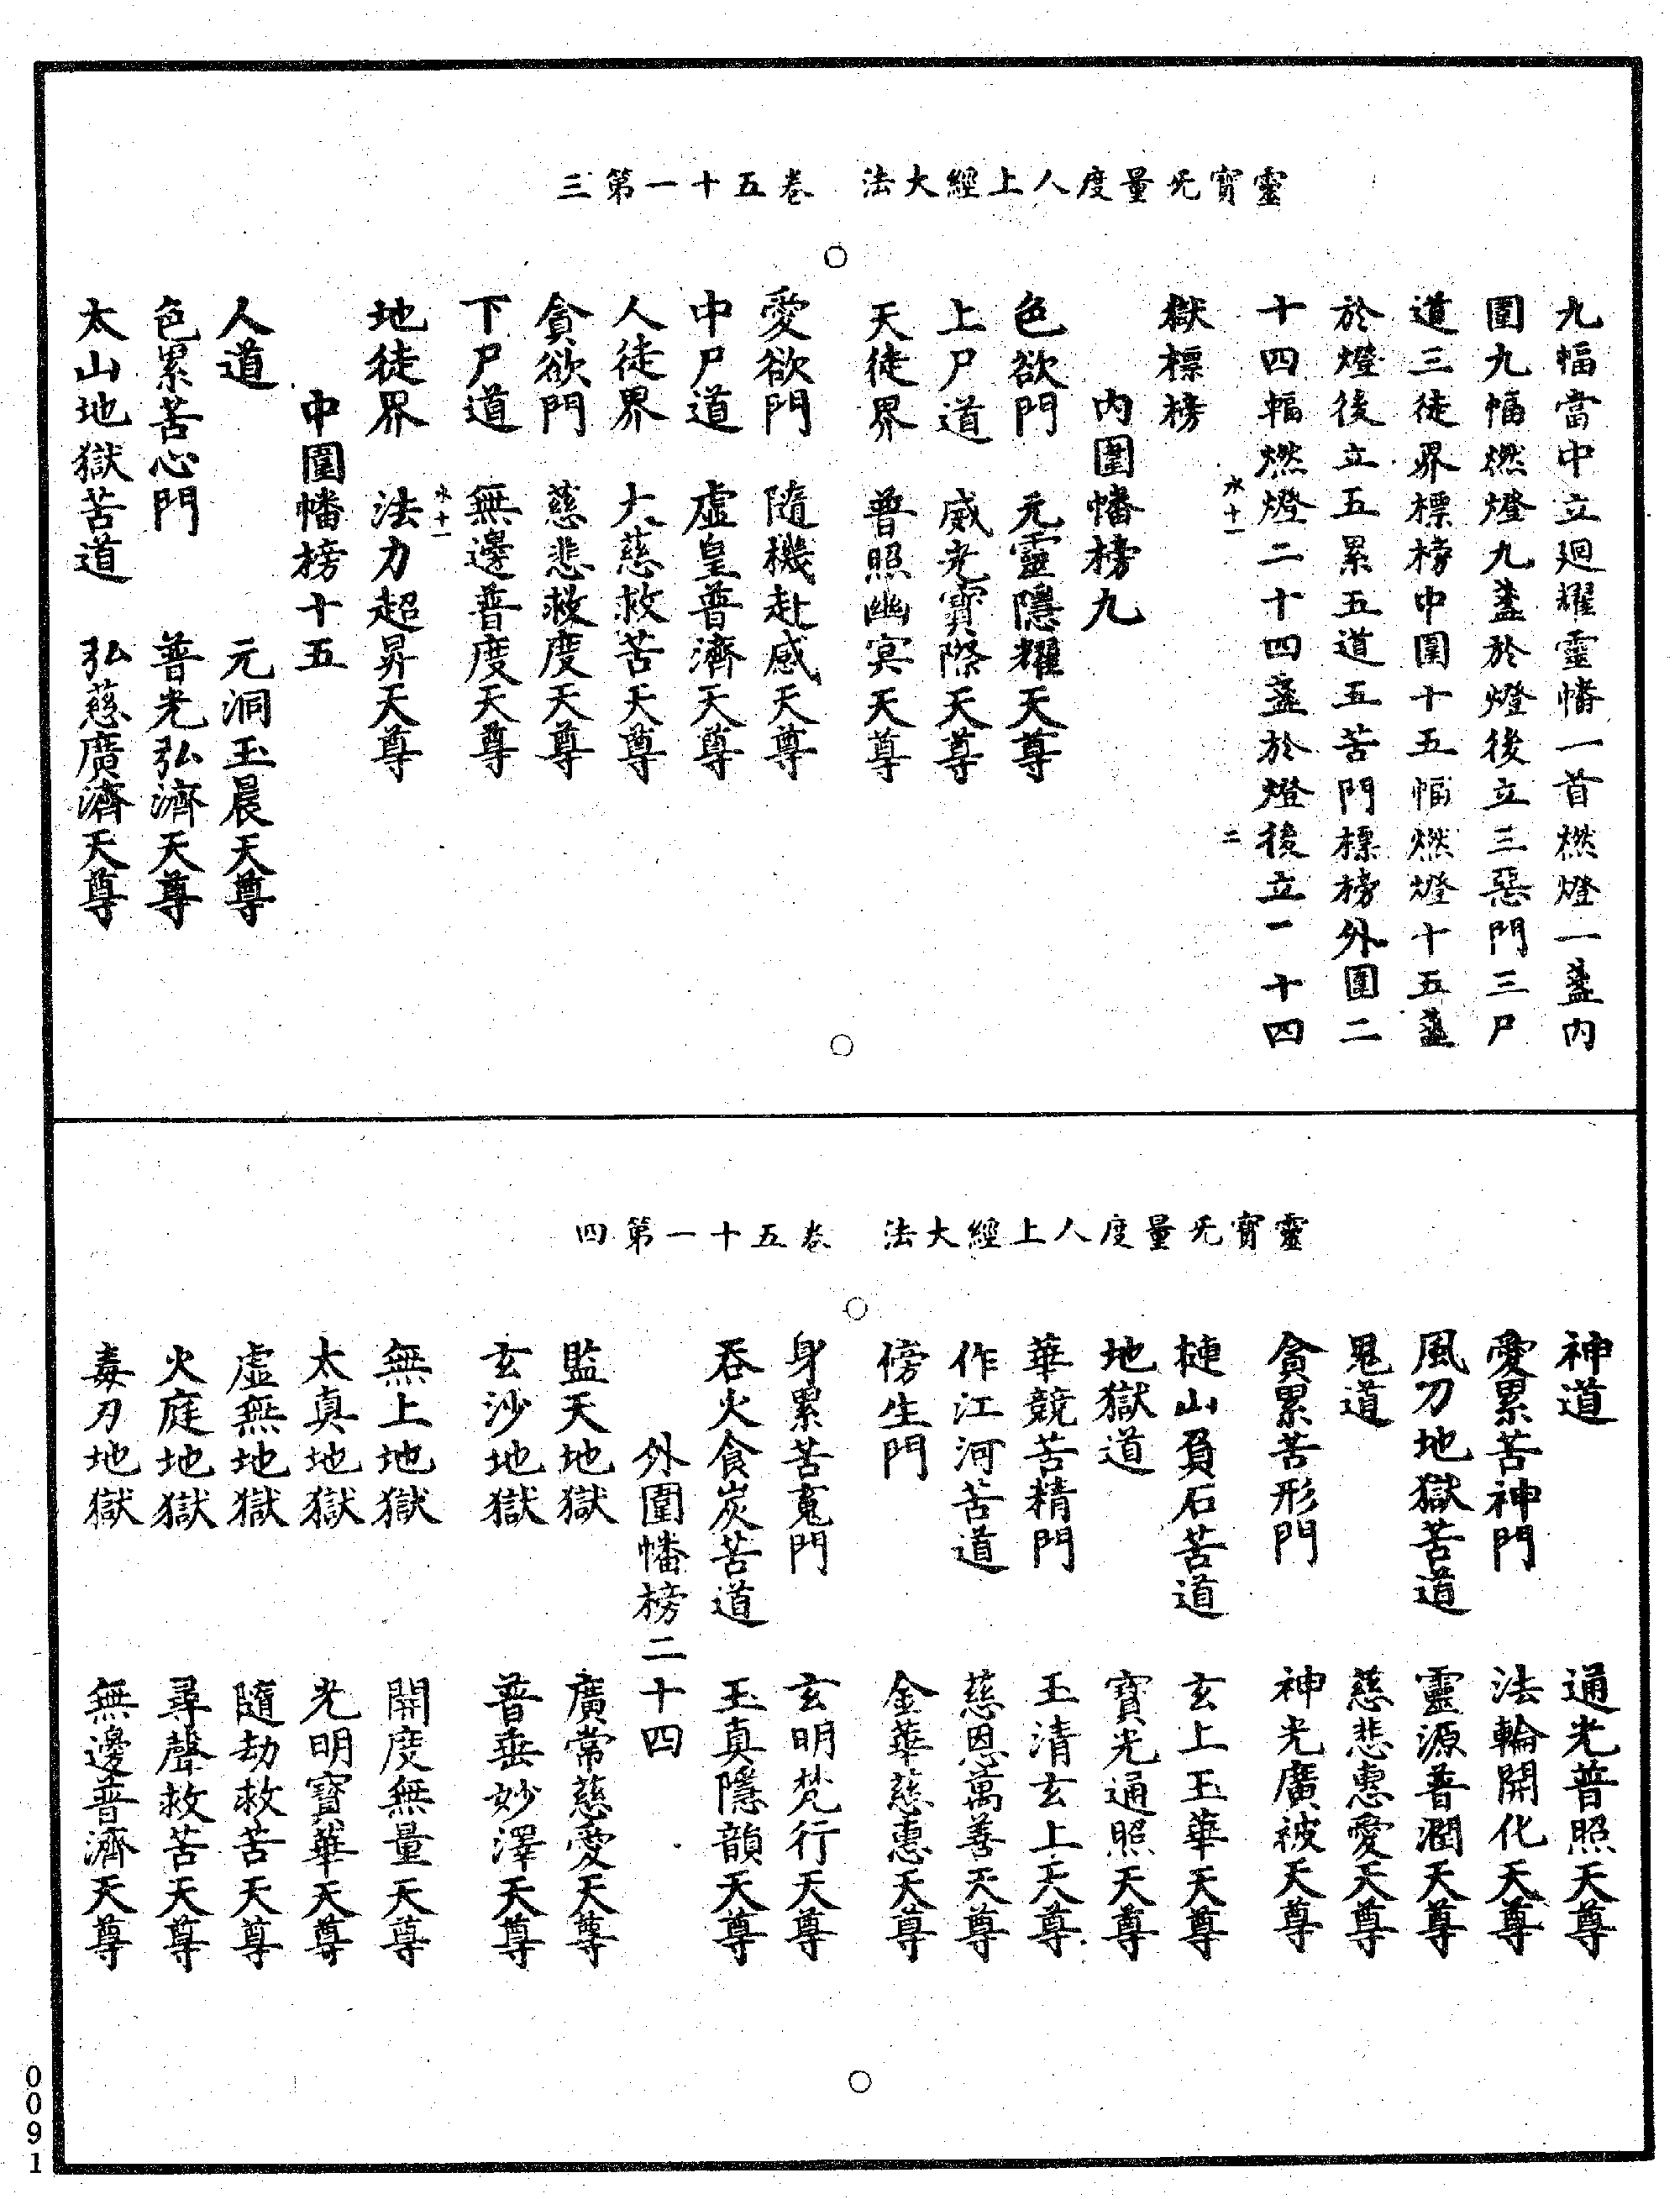 靈寳旡量度人上經大法　卷五十一第三
九幅當中立迴耀靈幡一首燃燈一盞内
圍九幅燃燈九盞於燈後立三惡門三尸
道三徒界標榜中圍十五幅燃燈十五盞
於燈後立五累五道五苦門標榜外圍二
十四幅燃燈二十四盞於燈後立一十四
水十一　二
獄標榜
内圍幡榜九
色欲門　元靈隱耀天尊
上尸道　威光寳際天尊
天徒界　普照幽冥天尊
愛欲門　隨機赴感天尊
中尸道　虛皇普濟天尊
人徒界　大慈救苦天尊
貪欲門　慈悲救度天尊
下尸道　無邊普度天尊
水十一
地徒界　法力超昇天尊
中圍幡榜十五
人道　元洞玉晨天尊
色累苦心門　普光弘濟天尊
太山地獄苦道　弘慈廣濟天尊
靈寳旡量度人上經大法　卷五十一第四
神道　通光普照天尊
愛累苦神門　法輪開化天尊
風刀地獄苦道　靈源普潤天尊
鬼道　慈悲惠愛天尊
貪累苦形門　神光廣被天尊
㨕山負石苦道　玄上玉華天尊
地獄道　寳光通照天尊
華競苦精門　玉清玄上天尊
作江河苦道　慈恩萬善天尊
傍生門　金華慈惠天尊
身累苦䰟門　玄明梵行天尊
吞火食炭苦道　玉真隱韻天尊
外圍幡榜二十四
監天地獄　廣常慈愛天尊
玄沙地獄　普垂妙澤天尊
無上地獄　開度無量天尊
太真地獄　光明寳華天尊
虛無地獄　隨劫救苦天尊
火庭地獄　尋聲救苦天尊
毒刃地獄　無邊普濟天尊
0091